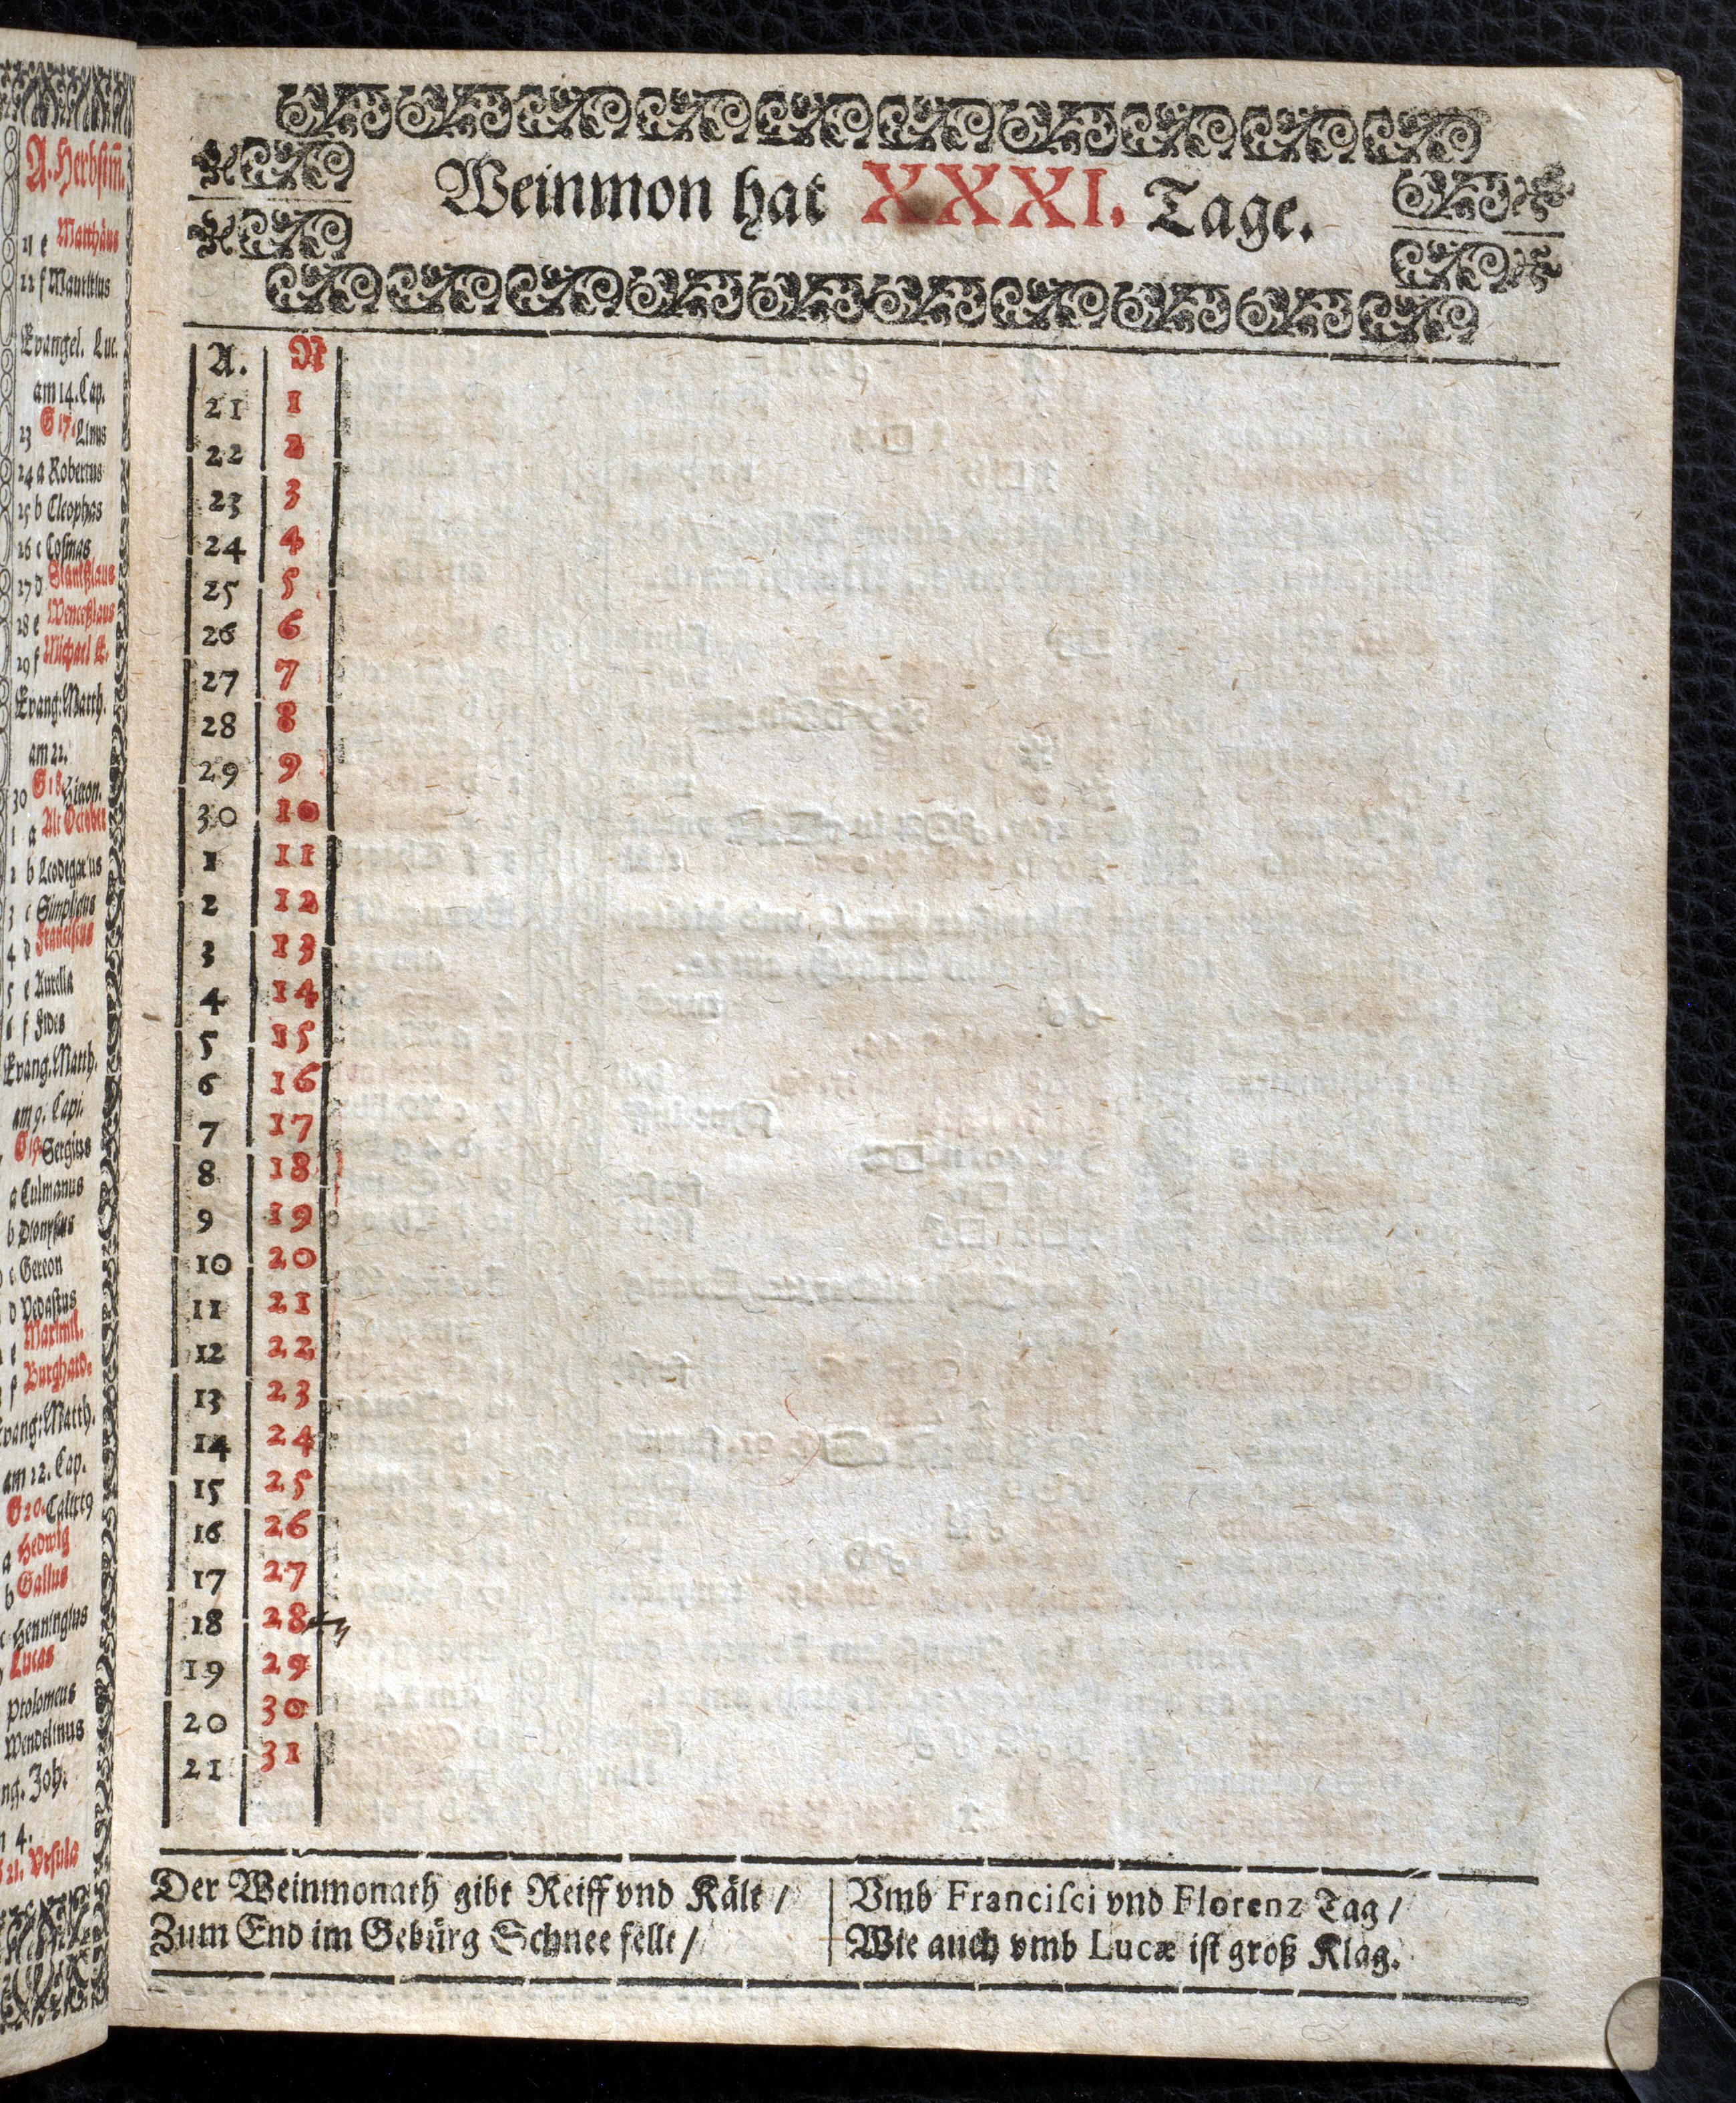 A. Herbstm̃.
21 e Matthäus
22 f Mauritius
Evangel. Luc.
am 14. Cap.
23 G 17. Linus
24 a Robertus
25 b Cleophas
26 c Cosmas
27 d Stanißlaus
28 e Wenceßlaus
29 f Michael E.
Evang: Matth.
am 22.
30 G 18. Hieron.
1 a Alt October
2 b Leodegarius
3 c Simplicius
4 d Franciscus
5 e Aurelia
6 f Fides
Evang. Matth.
am 9. Capi.
G 19. Sergius
a Culmanus
b Dionysius
c Gereon
d Vedastus
e Maximil.
f Burghard.
Evang: Matth.
am 22. Cap.
G 20. Calixt9
a Hedwig
b Gallus
c Henningius
Lucas
Ptolomeus
Wendelinus
Joh.
4.
21. Vrsula
Weinmon hat XXXI. Tage.
A. N
21 1
22 2
23 3
24 4
25 5
26 6
27 7
28 8
29 9
30 10
1 11
2 12
3 13
4 14
5 15
6 16
7 17
8 18
9 19
10 20
11 21
12 22
13 23
14 24
15 25
16 26
17 27
18 28
19 29
20 30
21 31
Der Weinmonath gibt Reiff vnd Kält /
Zum End im Gebürg Schnee fellt /
Vmb Francisci vnd Florenz Tag /
Wie auch vmb Lucæ ist groß Klag.